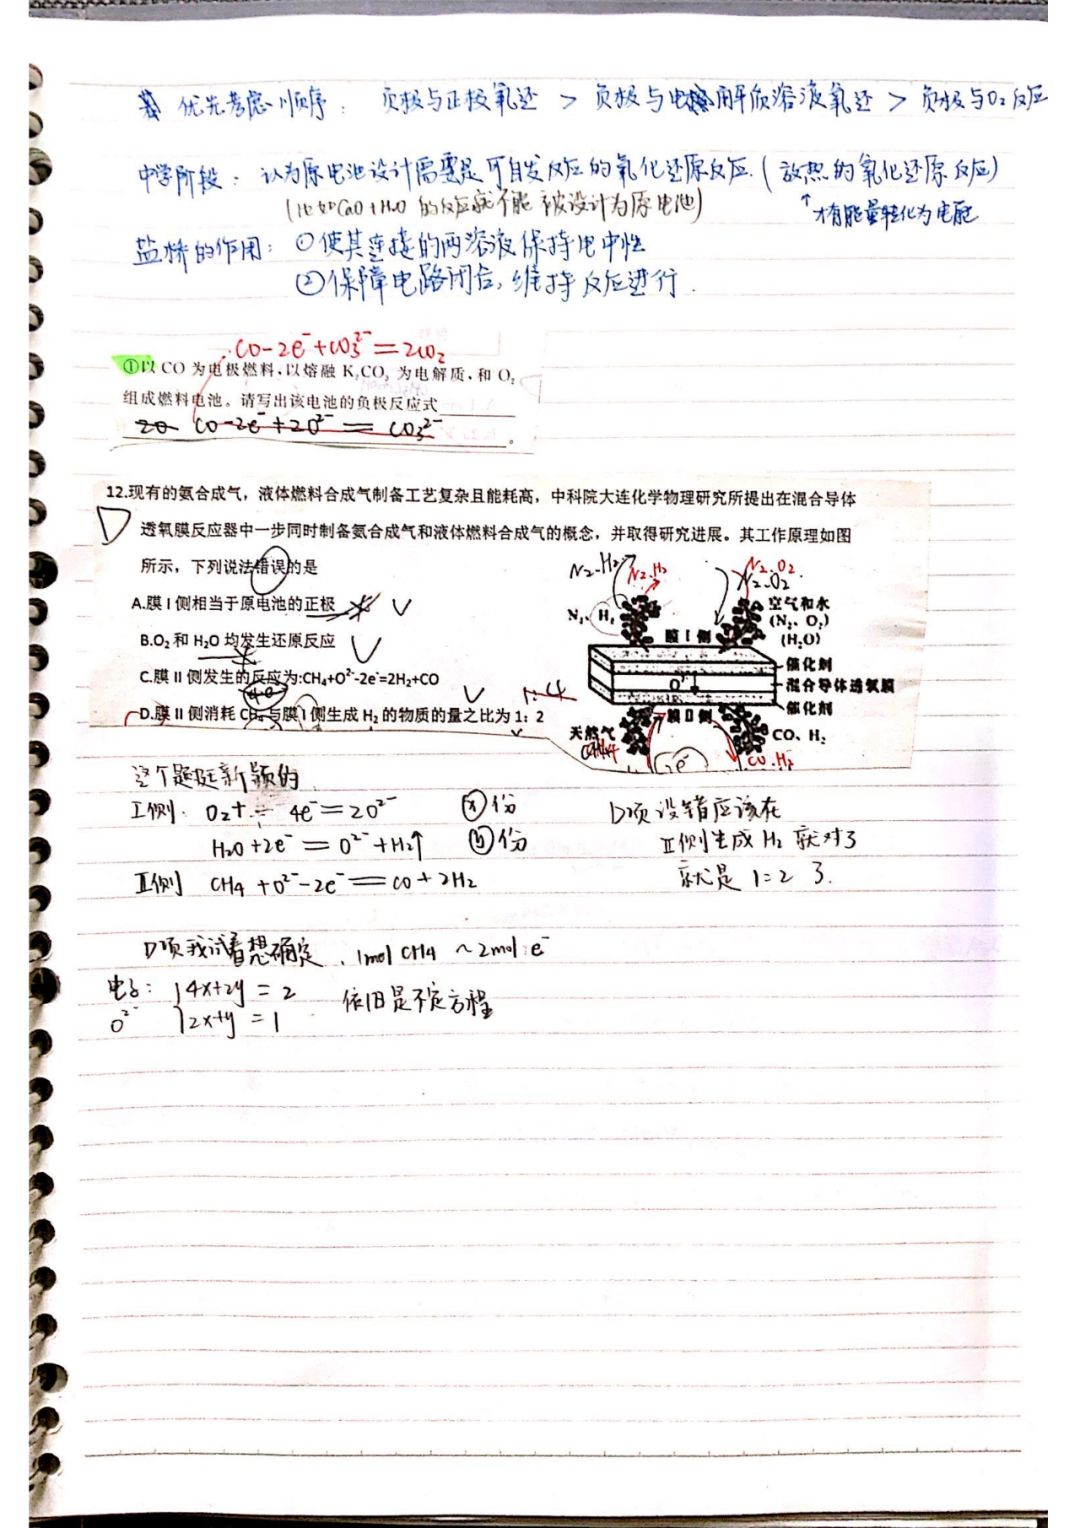 优先考虑顺序： 负极与正极氧还 > 负极与电解质溶液氧还 > 负极与O₂反应
中学阶段： 认为原电池设计需要是可自发反应的氧化还原反应.(放热的氧化还原反应)
(比如CaO+H₂O 的反应就不能被设计为原电池) ↑才有能量转化为电能
盐桥的作用: ①使其连接的两溶液保持电中性
②保障电路闭合,维持反应进行.
CO-2e⁻+CO₃²⁻=2CO₂
①以 CO 为电极燃料,以熔融 K₂CO₃ 为电解质,和 O₂
组成燃料电池。请写出该电池的负极反应式
CO-2e⁻+2O²⁻=CO₃²⁻。
12.现有的氨合成气，液体燃料合成气制备工艺复杂且能耗高，中科院大连化学物理研究所提出在混合导体
D 透氧膜反应器中一步同时制备氨合成气和液体燃料合成气的概念，并取得研究进展。其工作原理如图
所示，下列说法错误的是
A.膜 I 侧相当于原电池的正极 ✓
B.O₂ 和 H₂O 均发生还原反应 ✓
C.膜 II 侧发生的反应为:CH₄+O²⁻-2e⁻=2H₂+CO ✓
4e⁻
D.膜 II 侧消耗 CH₄ 与膜 I 侧生成 H₂ 的物质的量之比为 1：2
1:4
N₂.H₂ N₂.H₂ N₂.O₂
N₂.O₂
N₂、H₂ 膜 I 侧 空气和水
(N₂、O₂)
(H₂O)
催化剂
O²⁻ 混合导体透氧膜
催化剂
天然气 膜 II 侧 CO、H₂
CH₄ 2e⁻ CO.H₂
这个题挺新颖的
I侧: O₂+4e⁻=2O²⁻ ⓧ份 D项设错应该在
H₂O+2e⁻=O²⁻+H₂↑ ⓨ份 II侧生成 H₂ 就对了
II侧 CH₄+O²⁻-2e⁻=CO+2H₂ 就是 1:2 了.
D项我试着想确定、1mol CH₄ ~2mol e⁻
电子: {4x+2y=2 依旧是不定方程
O²⁻ {2x+y=1